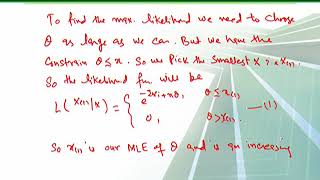 To find the max. likelihood we need to choose
θ as large as we can. But we have the
Constrain θ ≤ x. So we Pick the Smallest x i.e x(1).
So the likelihood fun will be
L(x(1)|x) = { e^{-Σxi+nθ}, θ ≤ x(1)
0, θ > x(1). —(1)
So x(1) is our MLE of θ and is an increasing